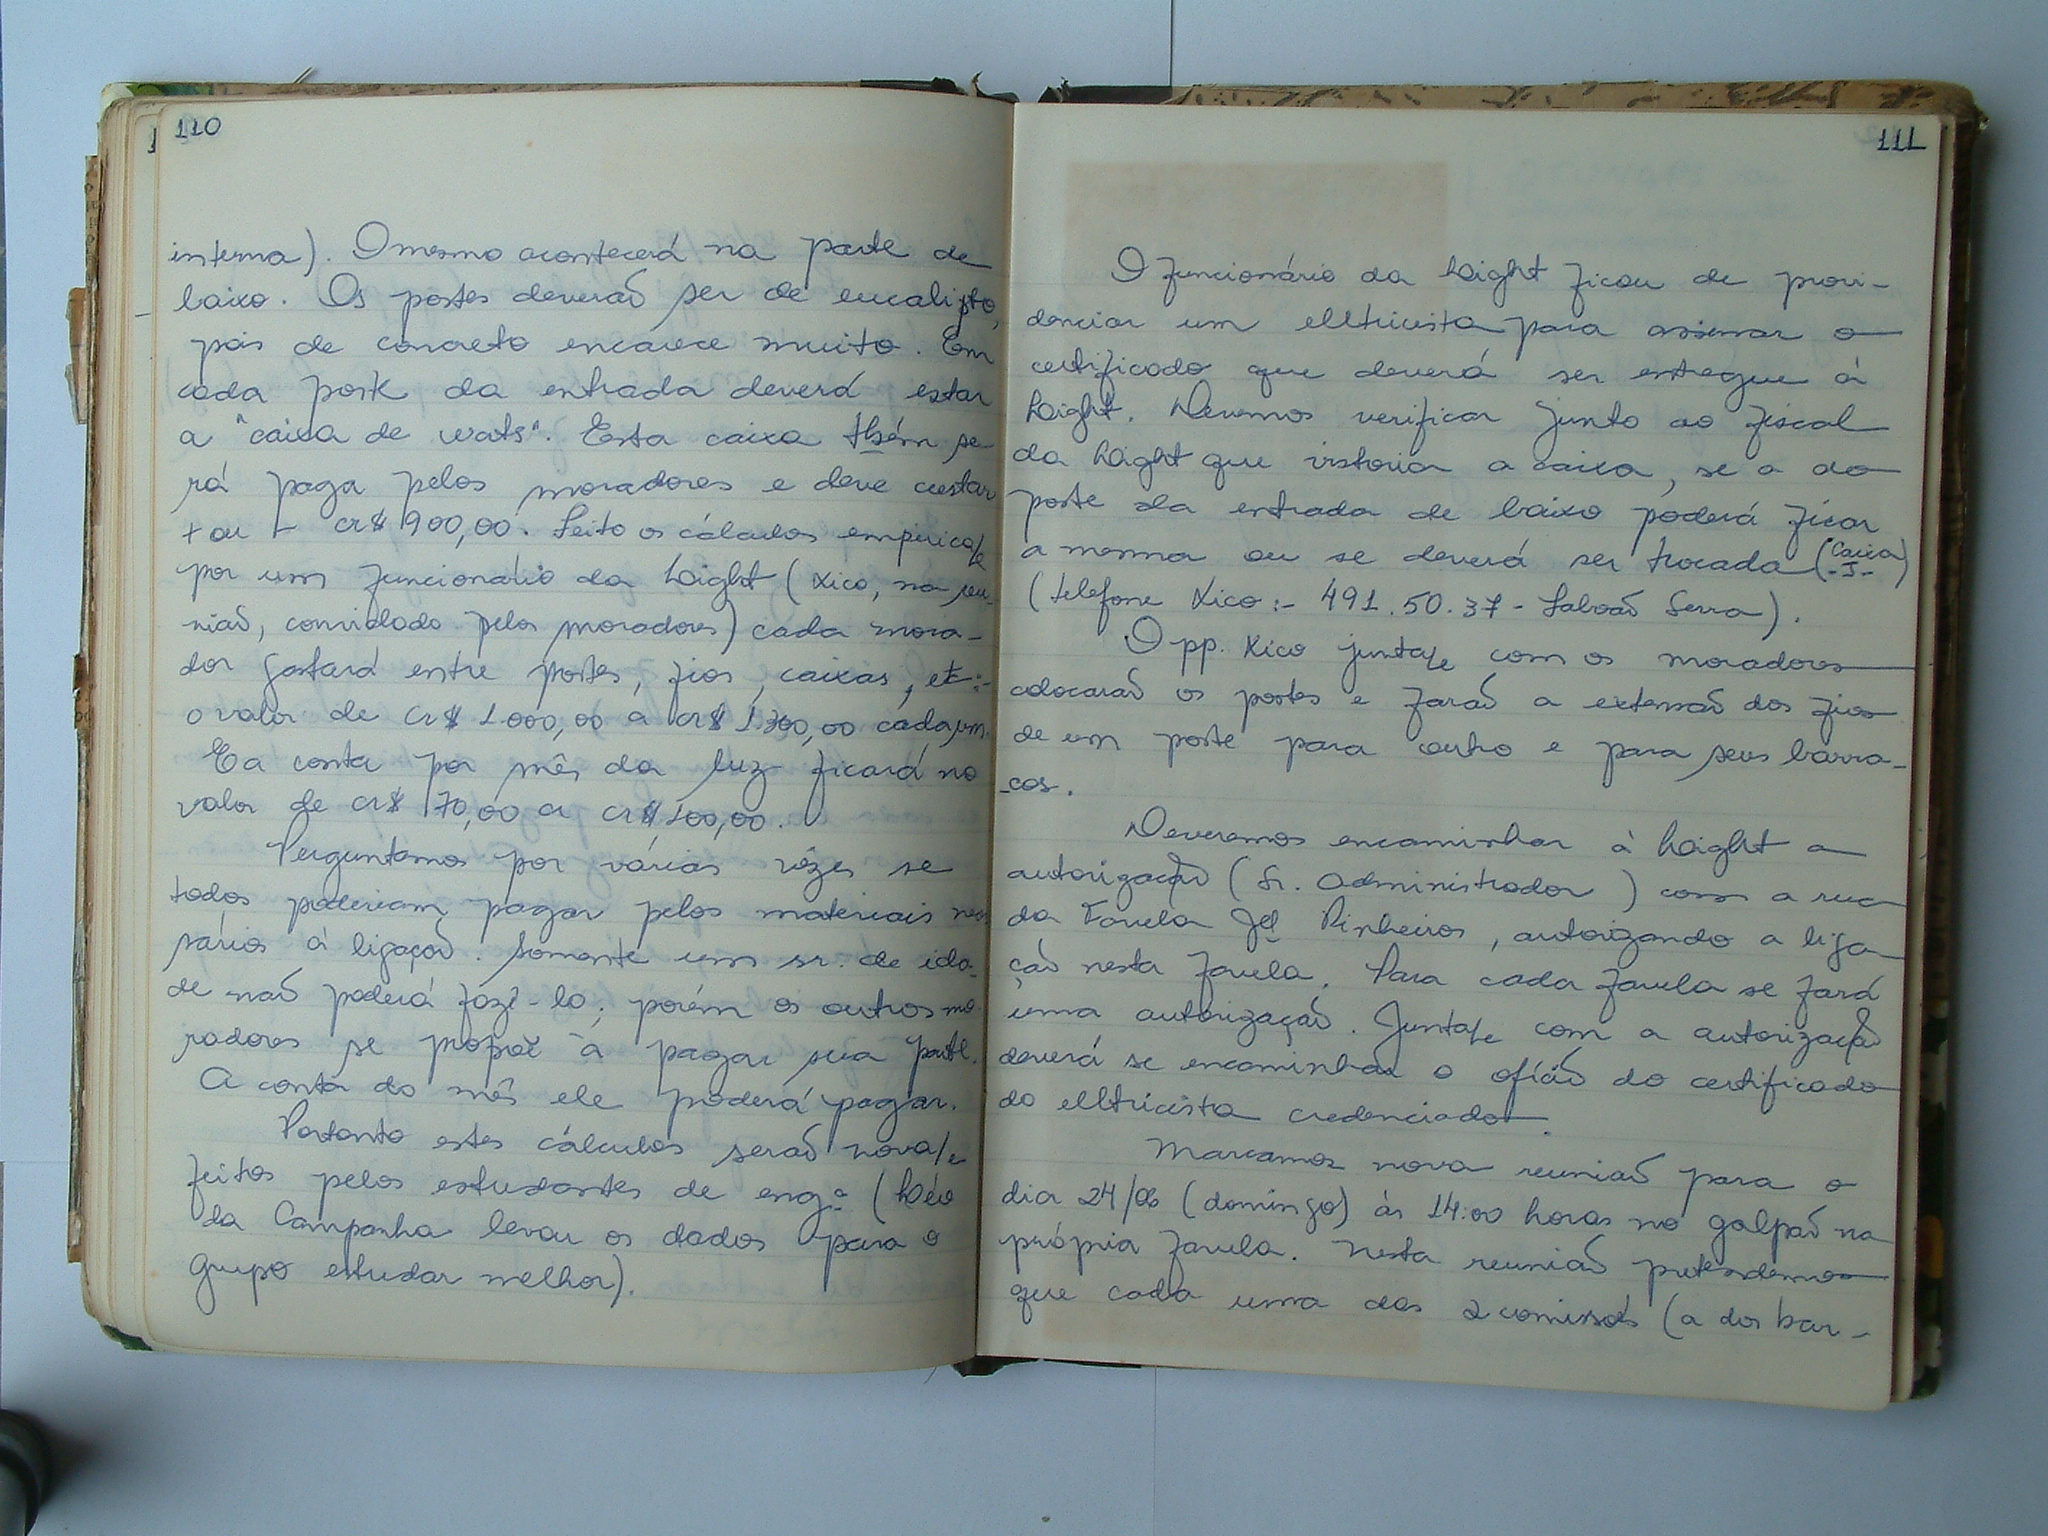 110
interna). O mesmo acontecerá na parte de
baixo. Os postes deverão ser de eucalipto,
pois de concreto encarece muito. Em
cada poste da entrada deverá estar
a "caixa de wats". Esta caixa tbém se-
rá paga pelos moradores e deve custar
+ ou - cr$ 900,00. Feito os cálculos empírica/e
por um funcionário da Light (Xico, na reu-
nião, convidado pelos moradores) cada mora-
dor gastará entre postes, fios, caixas, etc:-
o valor de cr$ 1.000,00 a cr$ 1.300,00 cada um.
E a conta por mês da luz ficará no
valor de cr$ 70,00 a cr$ 100,00.
Perguntamos por várias vêzes se
todos poderiam pagar pelos materiais
sários à ligação. Somente um sr. de ida-
de não poderá fazê-lo; porém os outros mo-
radores se propõe à pagar sua parte.
A conta do mês ele poderá pagar.
Portanto estes cálculos serão nova/e
feitos pelos estudantes de engª (Déo
da Campanha levou os dados para o
grupo estudar melhor).
111
O funcionário da Light ficou de provi-
denciar um elétricista para assinar o
certificado que deverá ser entregue à
Light. Devemos verificar junto ao fiscal
da Light que vistoria a caixa, se a do
poste da entrada de baixo poderá ficar
a mesma ou se deverá ser trocada (Caixa
-I-)
(telefone Xico:- 491.50.37 - Falcão Serra).
O pp. Xico junta/e com os moradores
colocarão os postes e farão a extensão dos fios
de um poste para outro e para seus barra-
-cos.
Deveremos encaminhar à Light a
autorização (Sr. Administrador) com a rua
da Favela Jd Pinheiros, autorizando a liga-
ção nesta favela. Para cada favela se fará
uma autorização. Junta/e com a autorização
deverá se encaminhar o ofício do certificado
do elétricista credenciado.
Marcamos nova reunião para o
dia 24/06 (domingo) às 14:00 horas no galpão na
própria favela. Nesta reunião pretendemos
que cada uma das 2 comissões (a dos bar-